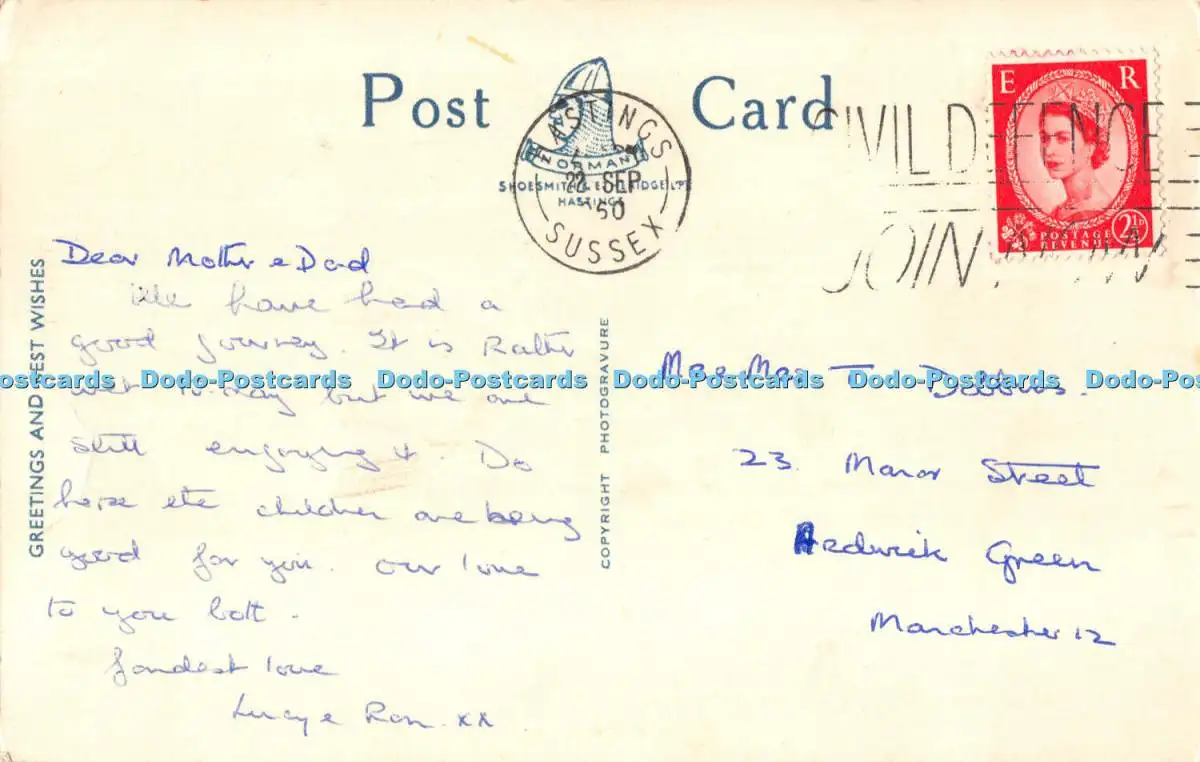 Post Card
E R
HASTINGS
22 SEP
SUSSEX
NORMAN
SHOESMITH & ETHERIDGE LTD
HASTINGS
CIVIL DEFENCE
JOIN
POSTAGE
REVENUE
2½D
GREETINGS AND BEST WISHES
COPYRIGHT PHOTOGRAVURE
Dear Mother & Dad
We have had a
good journey. It is Rather
wet to-day but we are
still enjoying it. Do
hope the children are being
good for you. our love
to you both.
fondest love
Lucy & Ron. xx
23 Manor Street
Ardwick Green
Manchester 12
Dodo-Postcards Dodo-Postcards Dodo-Postcards Dodo-Postcards Dodo-Postcards